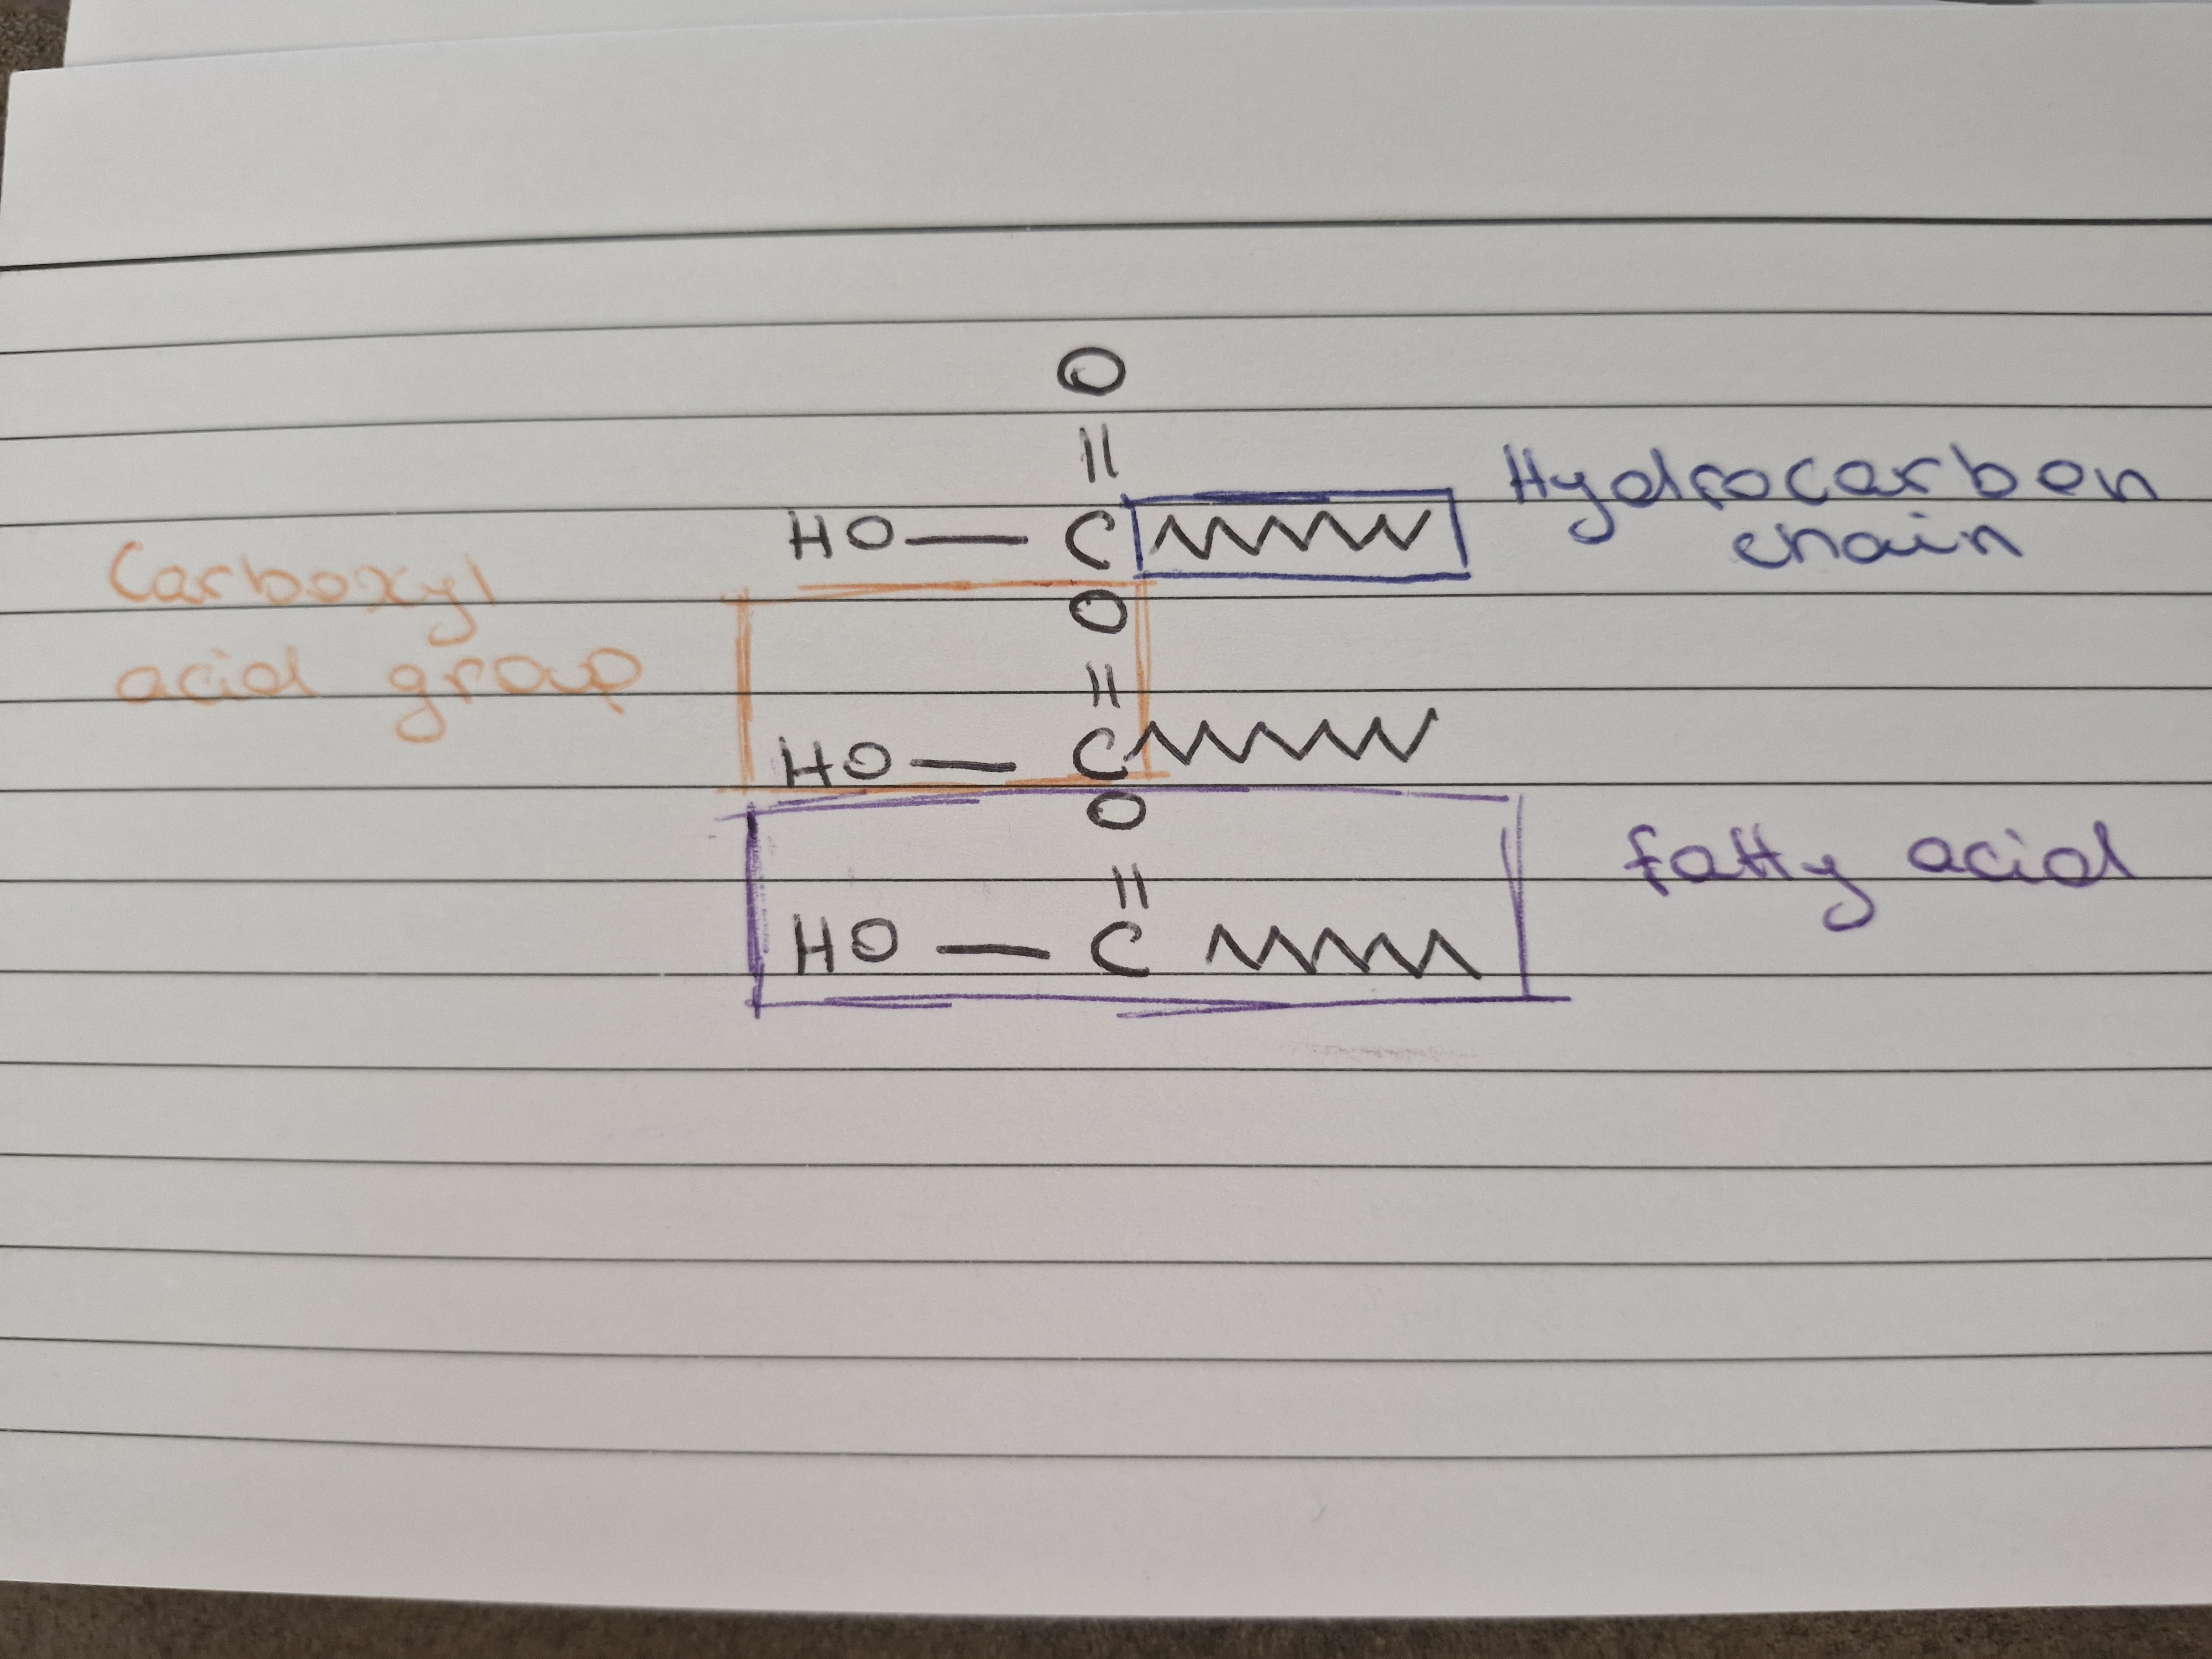 O
||
HO — C
Hydrocarbon
chain
Carboxyl
acid group
O
||
HO — C
O
||
HO — C
fatty acid